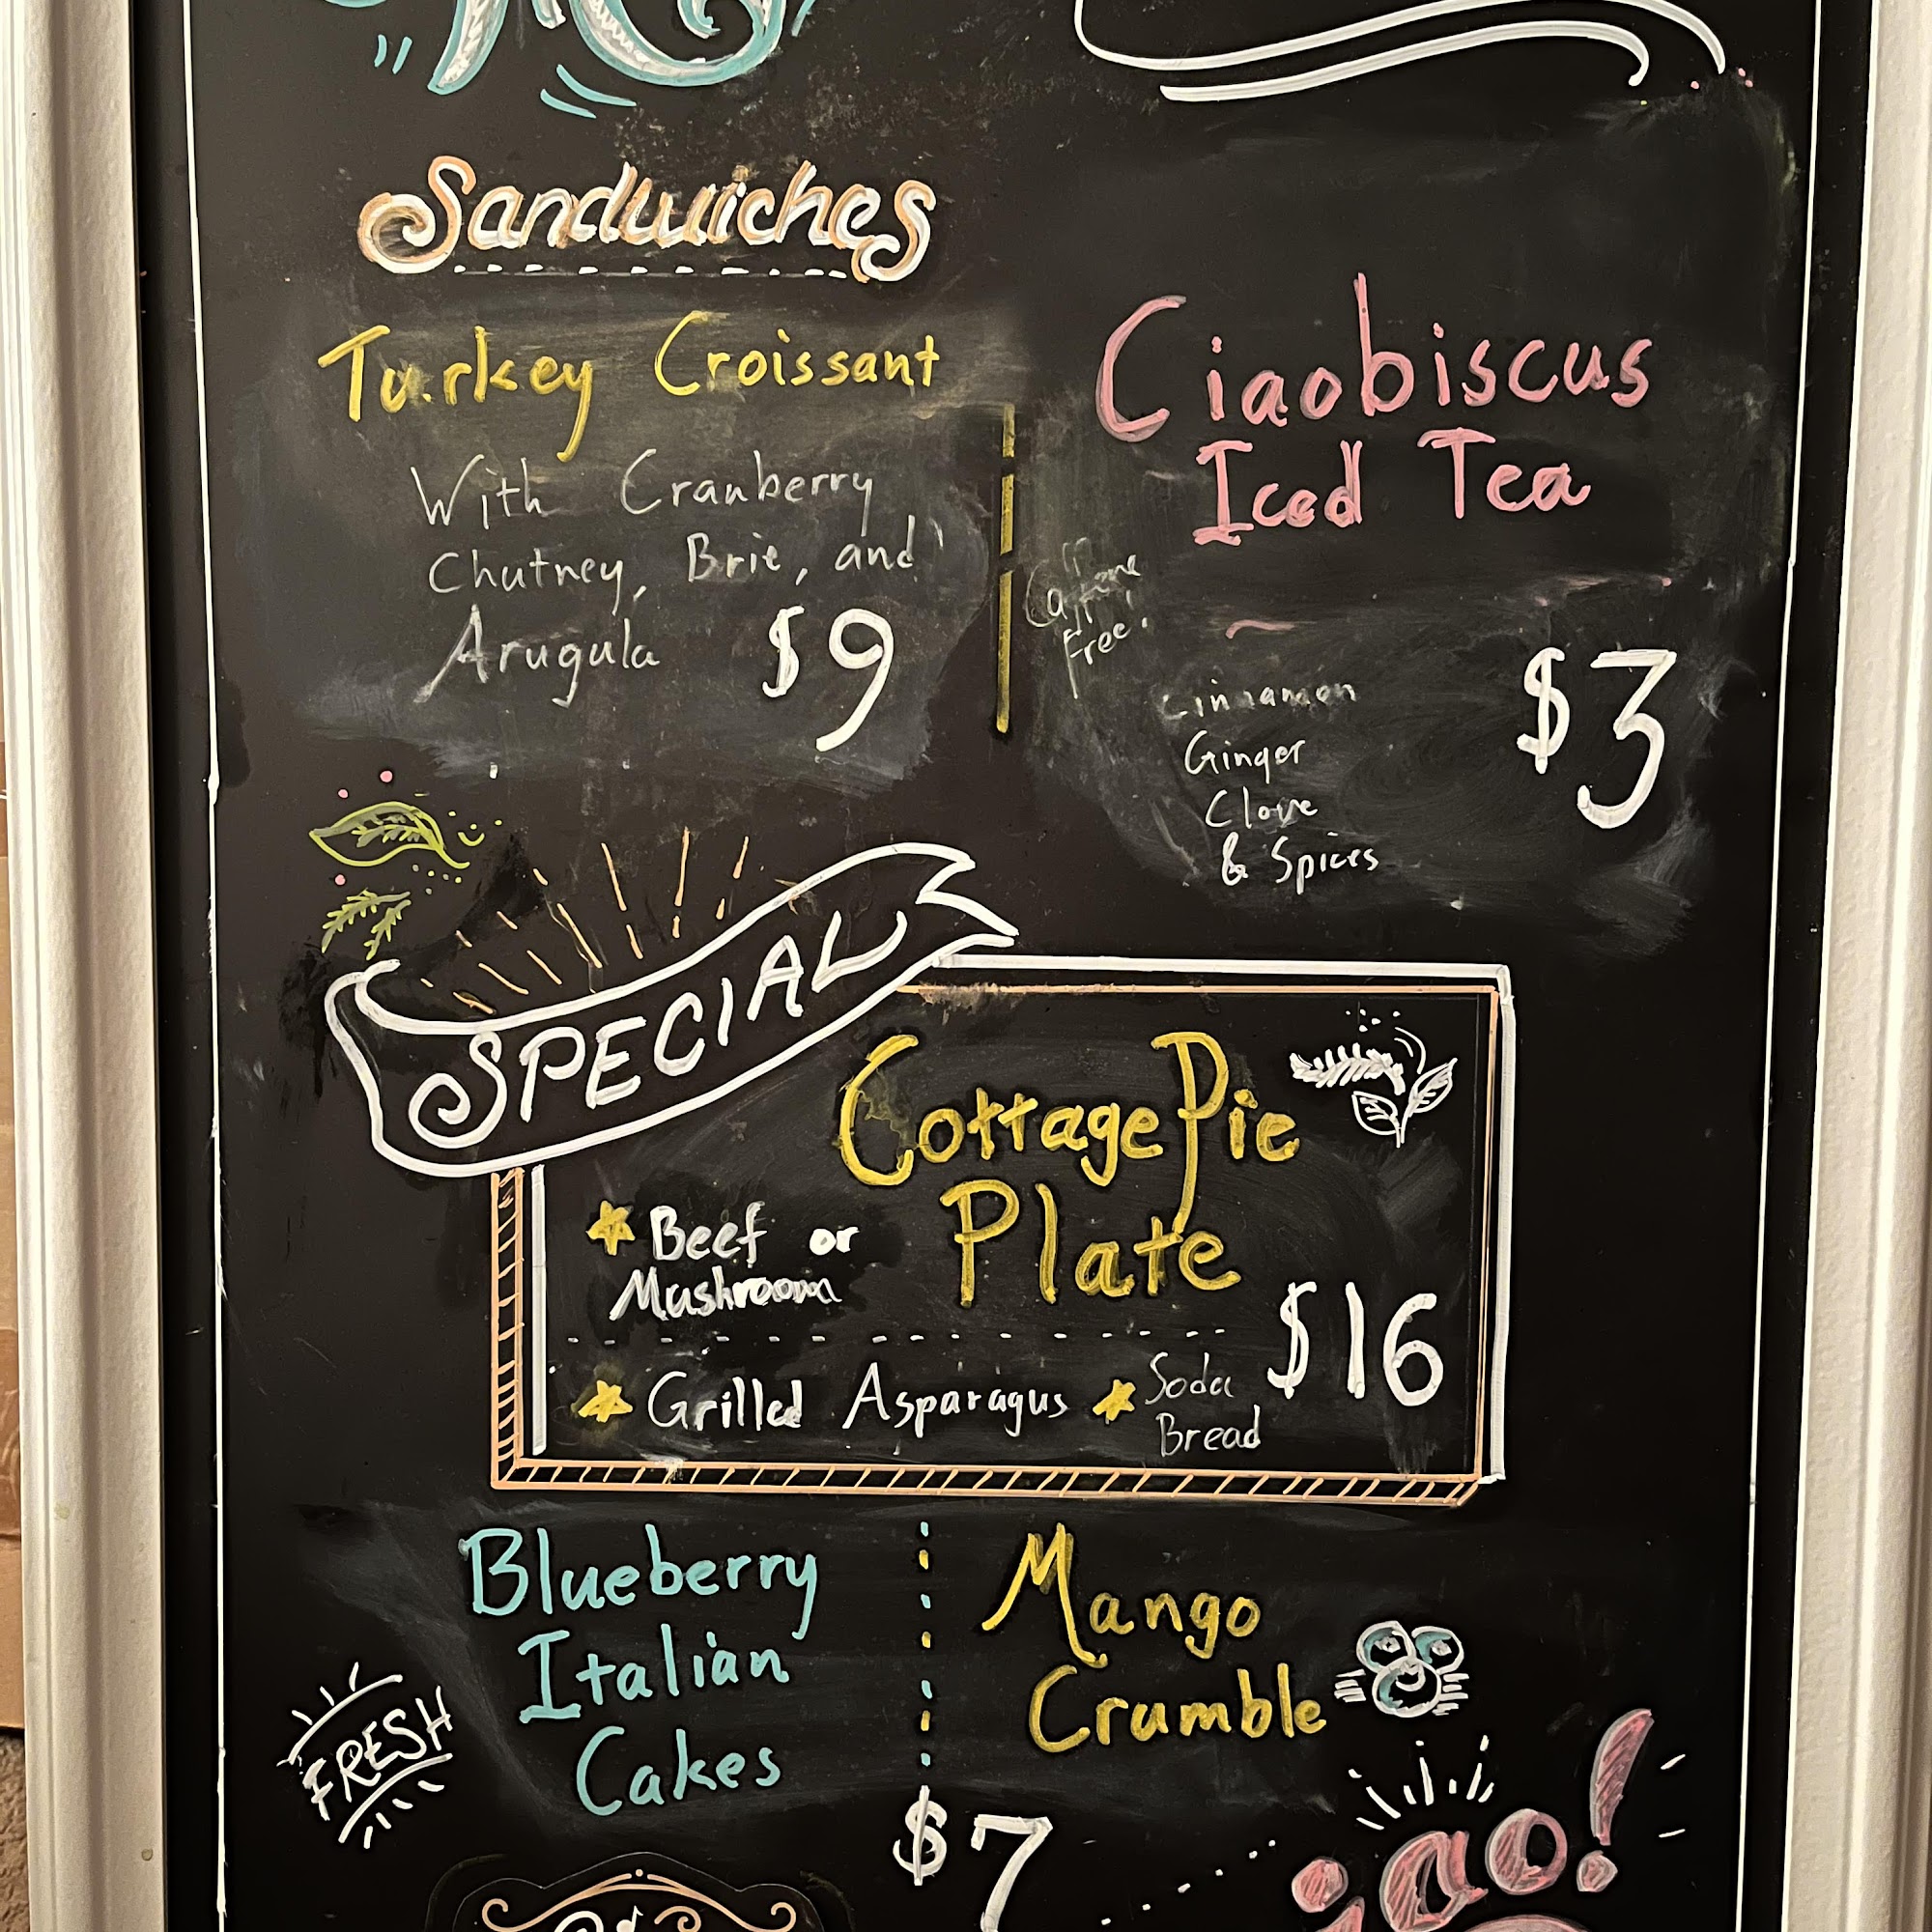 Sandwiches
Turkey Croissant
With Cranberry
Chutney, Brie, and
Arugula $9
Ciaobiscus
Iced Tea
Caffeine
Free!
Cinnamon
Ginger
Clove
& Spices
$3
SPECIAL
Cottage Pie
Plate
Beef or
Mushroom
$16
Grilled Asparagus
Soda
Bread
Blueberry
Italian
Cakes
FRESH
Mango
Crumble
$7
iao!